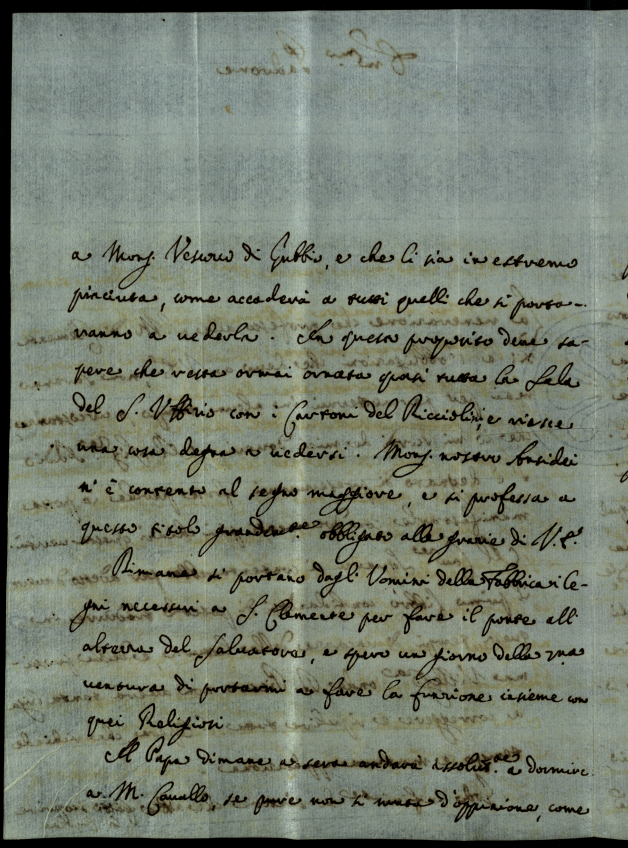 a Mons. Vescovo di Gubbio, e che li sia in estremo
piaciuta, come accaderà a tutti quelli che si porta-
ranno a vederla. In questo proposito deve sa-
pere che resta ormai ornata quasi tutta la Sala
del S. Uffizio con i Cartoni del Ricciolini, e riesce
una cosa degna a vedersi. Mons. nostro Ansidei
n'è contento al segno maggiore, e si professa a
questo titolo grandem.te obbligato alle grazie di V.S.
Dimane si portano dagli Uomini della Fabbrica i le-
gni necessari a S. Clemente per fare il ponte all'
altezza del Salvatore, e spero un giorno della 7na
ventura di portarmi a fare la funzione insieme con
quei Religiosi
Il Papa dimane a sera andarà assolut.ae a dormire
a M. Cavallo, se pure non si muta d'oppinione, come